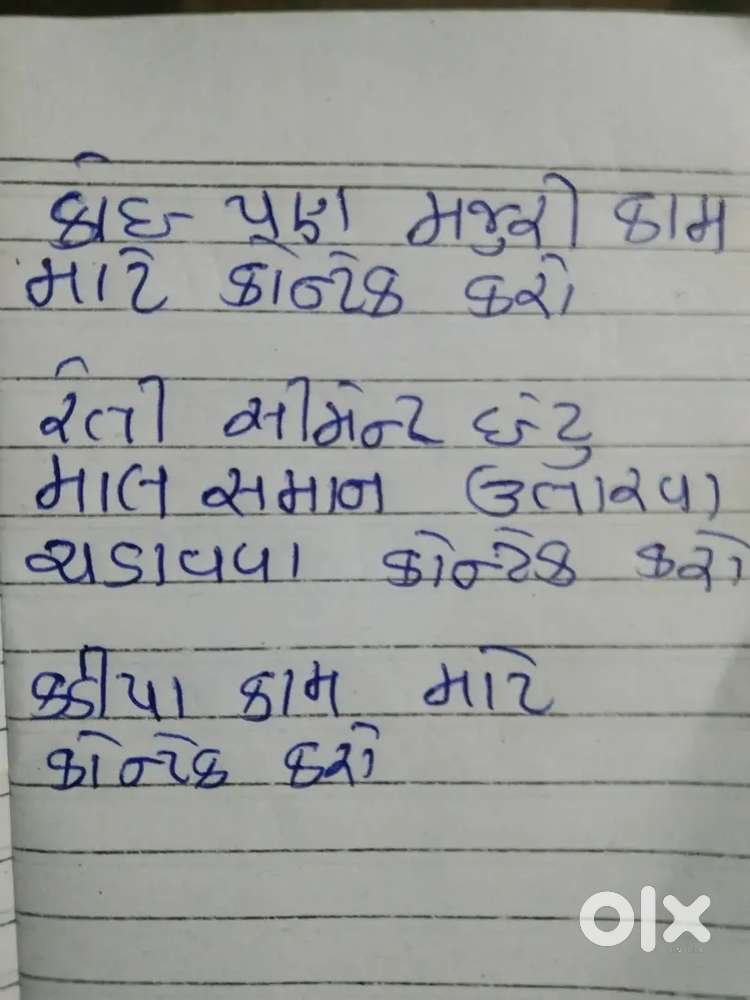 કોઇ પણ મજુરી કામ
માટે કોન્ટેક કરો
રેતી સીમેન્ટ ઈંટુ
માલ સમાન ઉતારવા
ચડાવવા કોન્ટેક કરો
કડીયા કામ માટે
કોન્ટેક કરો
olx
INDIA